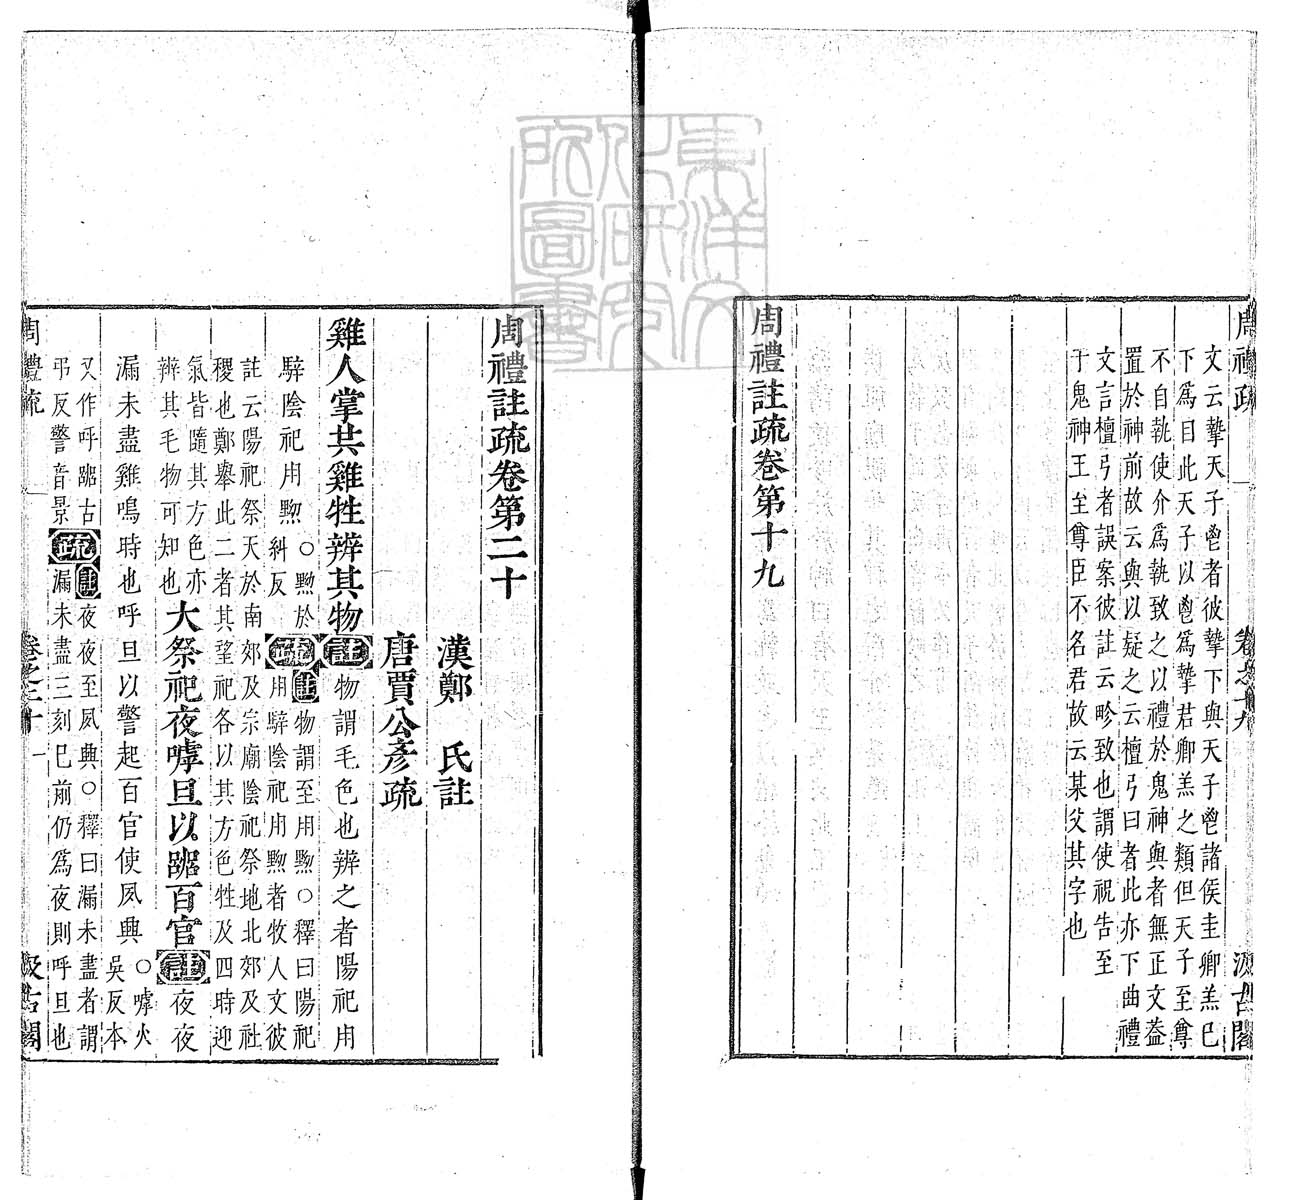 周禮疏
卷之十九
汲古閣
文云摯天子鬯者彼摯下與天子鬯諸侯圭卿羔已
下爲目此天子以鬯爲摯若卿羔之類但天子至尊
不自執使介爲執致之以禮於鬼神與者無正文葢
置於神前故云與以疑之云檀弓曰者此亦下曲禮
文言檀弓者誤案彼註云畛致也謂使祝告至
于鬼神王至尊臣不名君故云某父其字也
周禮註疏卷第十九
東洋文
化研究
所圖書
周禮註疏卷第二十
漢鄭　氏註
唐賈公彥疏
雞人掌共雞牲辨其物
註
物謂毛色也辨之者陽祀用
騂陰祀用黝
○黝於
糾反
疏
註
物謂至用黝○釋曰陽祀
用騂陰祀用黝者牧人文彼
註云陽祀祭天於南郊及宗廟陰祀祭地北郊及社
稷也鄭舉此二者其望祀各以其方色牲及四時迎
氣皆隨其方色亦
辨其毛物可知也
大祭祀夜嘑旦以嘂百官
註
夜夜
漏未盡雞鳴時也呼旦以警起百官使夙興
○嘑火
吳反本
又作呼嘂古
弔反警音景
疏
註
夜夜至夙興○釋曰漏未盡者謂
漏未盡三刻已前仍爲夜則呼旦也
周禮疏
卷之二十
一
汲古閣